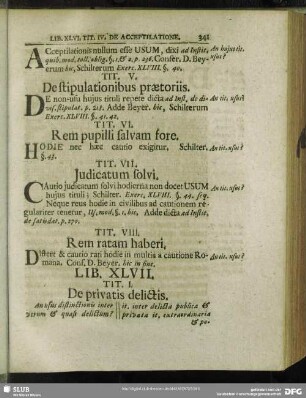 LIB. XLVI. TIT. IV. DE ACCEPTILATIONE. 341
ACceptilationis nullum esse USUM, dixi ad Instit. An hujus tit.
quib. mod. toll. oblig. §. 1. & 2. p. 236. Confer. D. Bey- usus?
erum hic, Schilterum Exerc. XLVIII. §. 40.
TIT. V.
De stipulationibus prætoriis.
DE non-usu hujus tituli repete dicta ad Inst. de di- An tit. usus?
vis. stipulat. p. 218. Adde Beyer. hic, Schilterum
Exerc. XLVIII. §. 41. 42.
TIT. VI.
Rem pupilli salvam fore.
HODIE nec hæc cautio exigitur, Schilter. An tit. usus?
§. 43.
TIT. VII.
Judicatum solvi.
CAutio judicatum solvi hodierna non docet USUM An tit. usus?
hujus tituli; Schilter. Exerc. XLVIII. §. 44. seq.
Neque reus hodie in civilibus ad cautionem re-
gulariter tenetur, Us. mod. §. 1. hic, Adde dicta ad Instit.
de satisdat. p. 270.
TIT. VIII.
Rem ratam haberi,
DIffere & cautio rati hodie in multis a cautione Ro- An tit. usus?
mana. Conf. D. Beyer. hic in fine.
LIB. XLVII.
TIT. I.
De privatis delictis.
An usus distinctionis inter
verum & quasi delictum?
it. inter delicta publica &
privata it. extraordinaria
& po-
SLUB
DFG